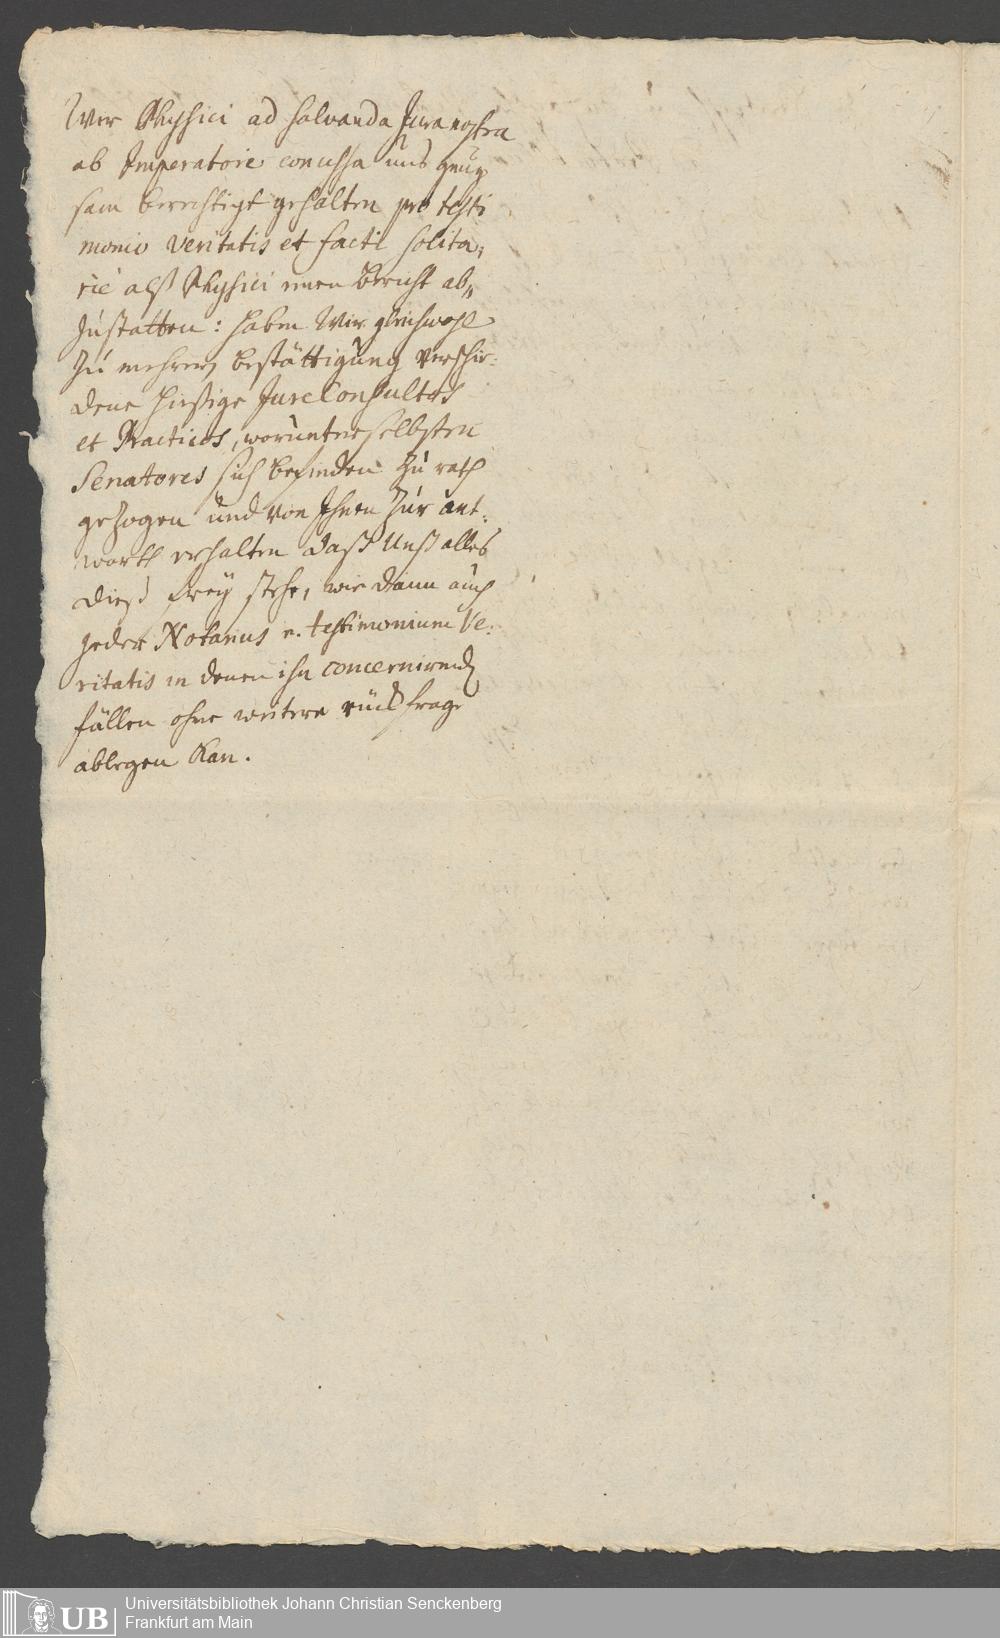 Wir Physici ad salvanda Jura nostra
ab Imperatore concessa uns gnug
sam berechtigt gehalten pro testi
monio veritatis et facti solita,,
riè alß Physici einen Bericht ab,,
zustatten: haben Wir gleichwohl
zu mehrer bestättigung verschie:
dene hießige JureConsultos
et Practicos, worunter selbsten
Senatores sich befinden zu rath
gezogen und von Ihnen zur ant:
worth erhalten daß Unß alles
dieß frey stehe, wie dann auch
jeder Notarius e. testimonium Ve:
ritatis in denen ihn concernirend
fällen ohne weitere rückfrage
ablegen Kan.
UB
Universitätsbibliothek Johann Christian Senckenberg
Frankfurt am Main